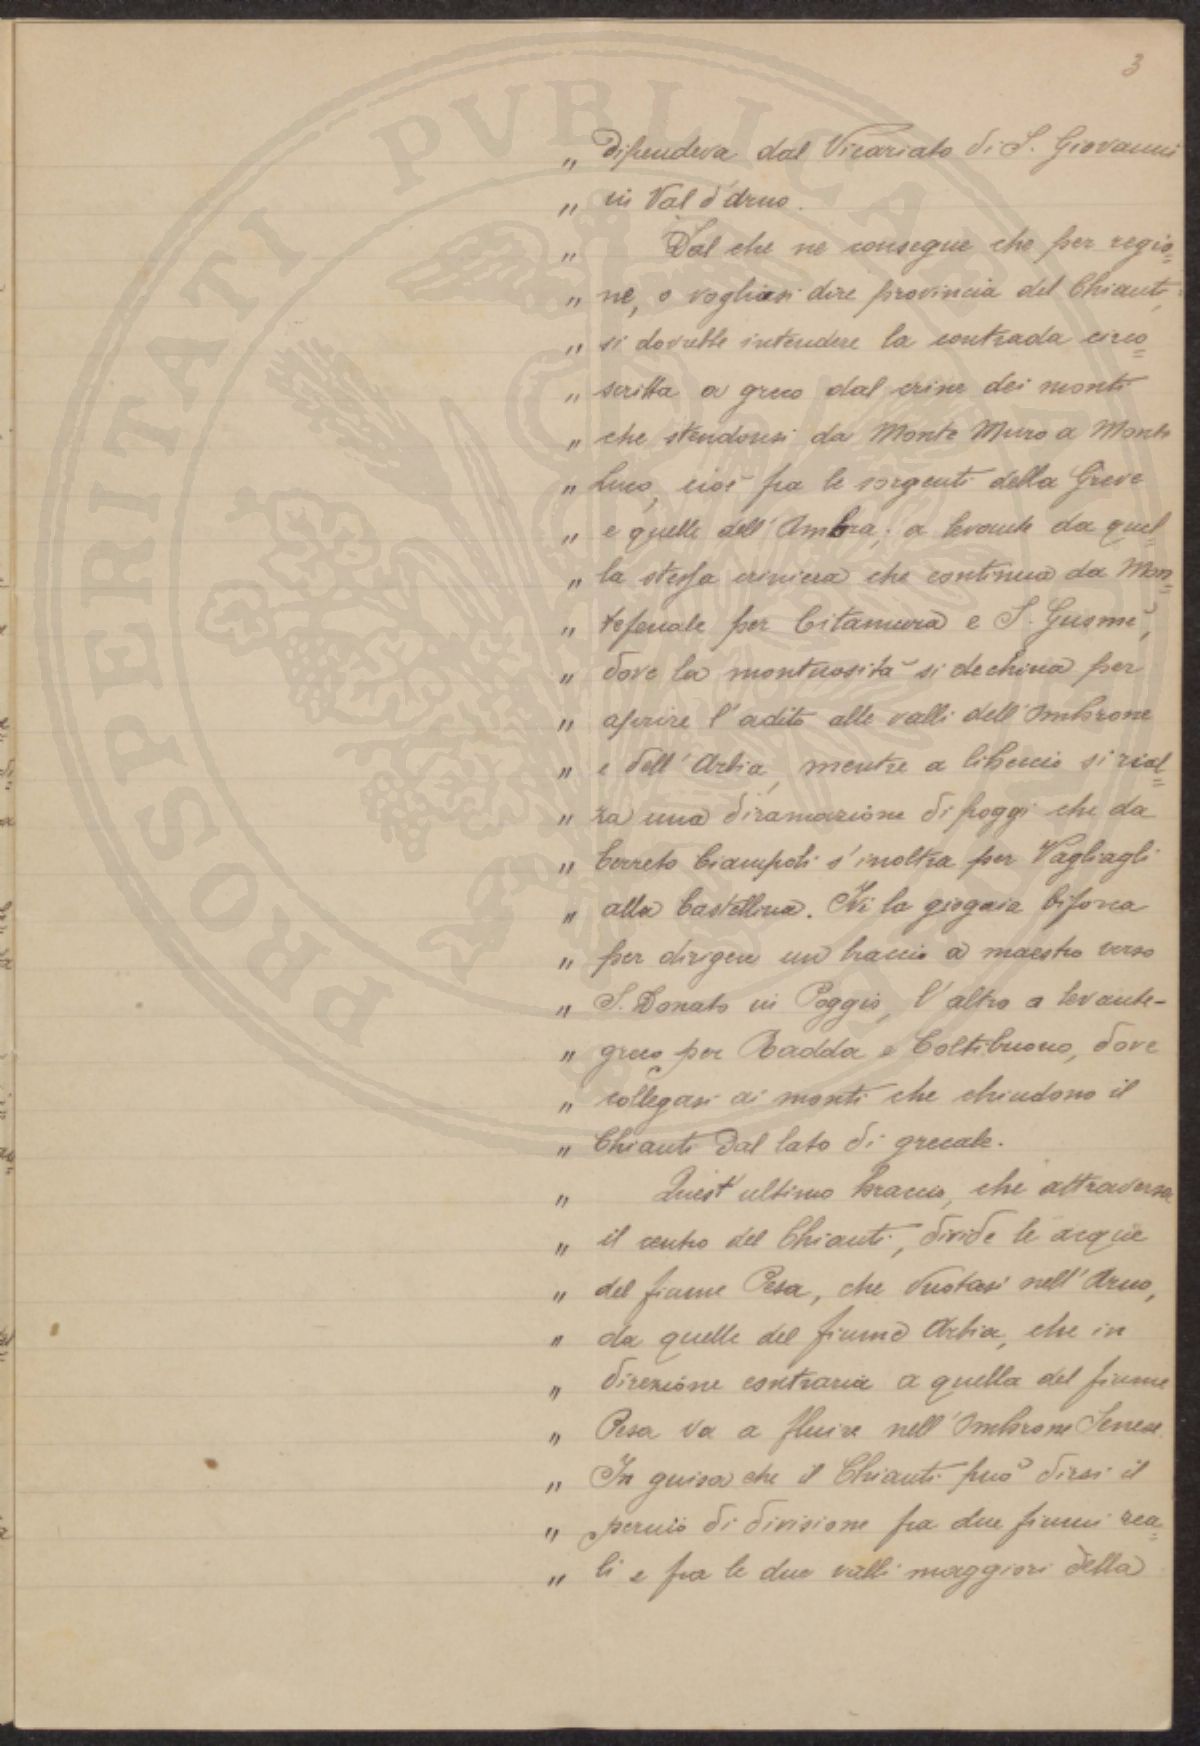 3
„ Dipendeva dal Vicariato di S. Giovanni
„ in Val d'Arno.
„ Dal che ne consegue che per regio=
„ ne, o vogliasi dire provincia del Chianti,
„ si dovrebbe intendere la contrada circo=
„ scritta a greco dal crine dei monti
„ che stendonsi da Monte Muro a Monte
„ Luco, cioè fra le sorgenti della Greve
„ e quelle dell'Ambra; a levante da quel=
„ la stessa criniera che continua da Mon=
„ tefenale per Citamura e S. Gusmè,
„ dove la montuosità si dechina per
„ aprire l'adito alle valli dell'Ombrone
„ e dell'Arbia, mentre a libeccio si rial=
„ za una diramazione di poggi che da
„ Cerreto Ciampoli s'inoltra per Vagliagli
„ alla Castellina. Ivi la giogaia biforca
„ per dirigere un braccio a maestro verso
„ S. Donato in Poggio, l'altro a levante-
„ greco per Radda e Coltibuono, dove
„ collegasi ai monti che chiudono il
„ Chianti dal lato di grecale.
„ Quest'ultimo braccio, che attraversa
„ il centro del Chianti, divide le acque
„ del fiume Pesa, che vuotasi nell'Arno,
„ da quelle del fiume Arbia, che in
„ direzione contraria a quella del fiume
„ Pesa va a fluire nell'Ombrone Senese.
„ In guisa che il Chianti può dirsi il
„ pernio di divisione fra due fiumi rea=
„ li e fra le due valli maggiori della
PROSPERITATI PVBLICAE